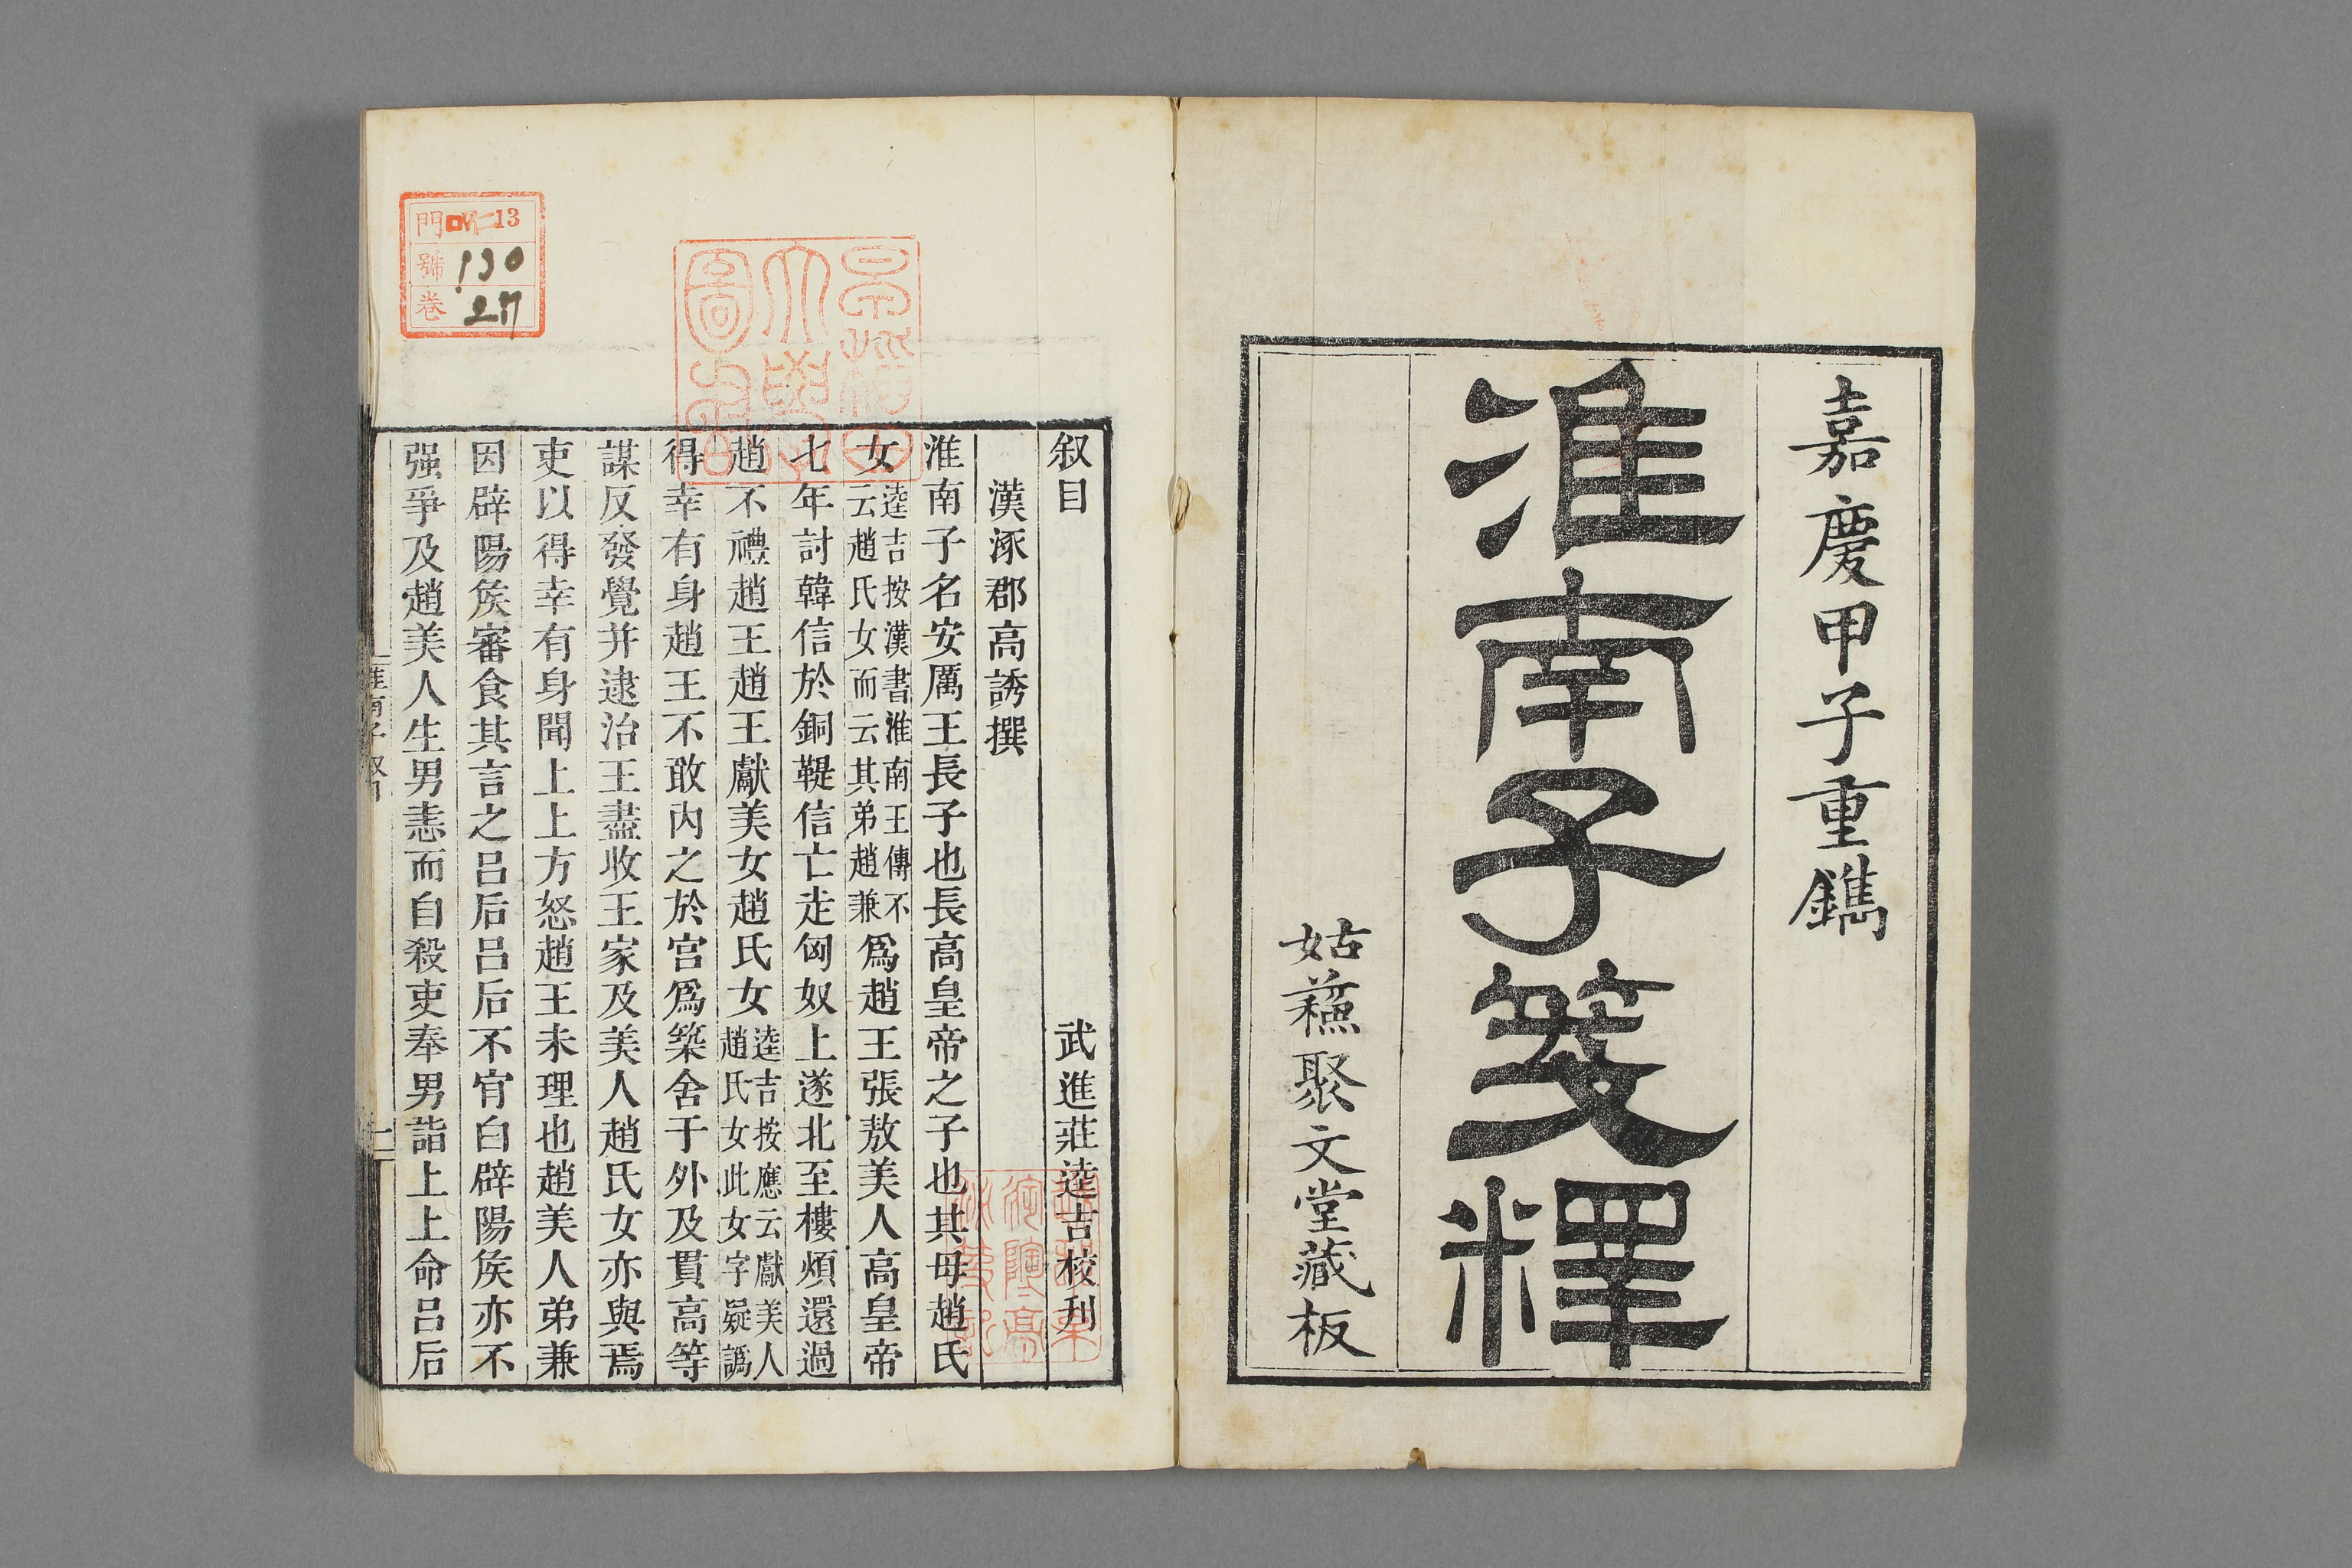 嘉慶甲子重鐫
淮南子箋釋
姑蘓聚文堂藏板
叙目　武進莊逵吉校刋
漢涿郡高誘撰
淮南子名安厲王長子也長高皇帝之子也其母趙氏
女逵吉按漢書淮南王傳不云趙氏女而云其弟趙兼爲趙王張敖美人高皇帝
七年討韓信於銅鞮信亡走匈奴上遂北至樓煩還過
趙不禮趙王趙王獻美女趙氏女逵吉按應云獻美人趙氏女此女字疑譌
得幸有身趙王不敢内之於宫爲築舍于外及貫高等
謀反發覺并逮治王盡收王家及美人趙氏女亦與焉
吏以得幸有身聞上上方怒趙王未理也趙美人弟兼
因辟陽矦審食其言之呂后呂后不肯白辟陽矦亦不
强爭及趙美人生男恚而自殺吏奉男詣上上命呂后
淮南子 叙目
一
門 13
號 130
卷 27